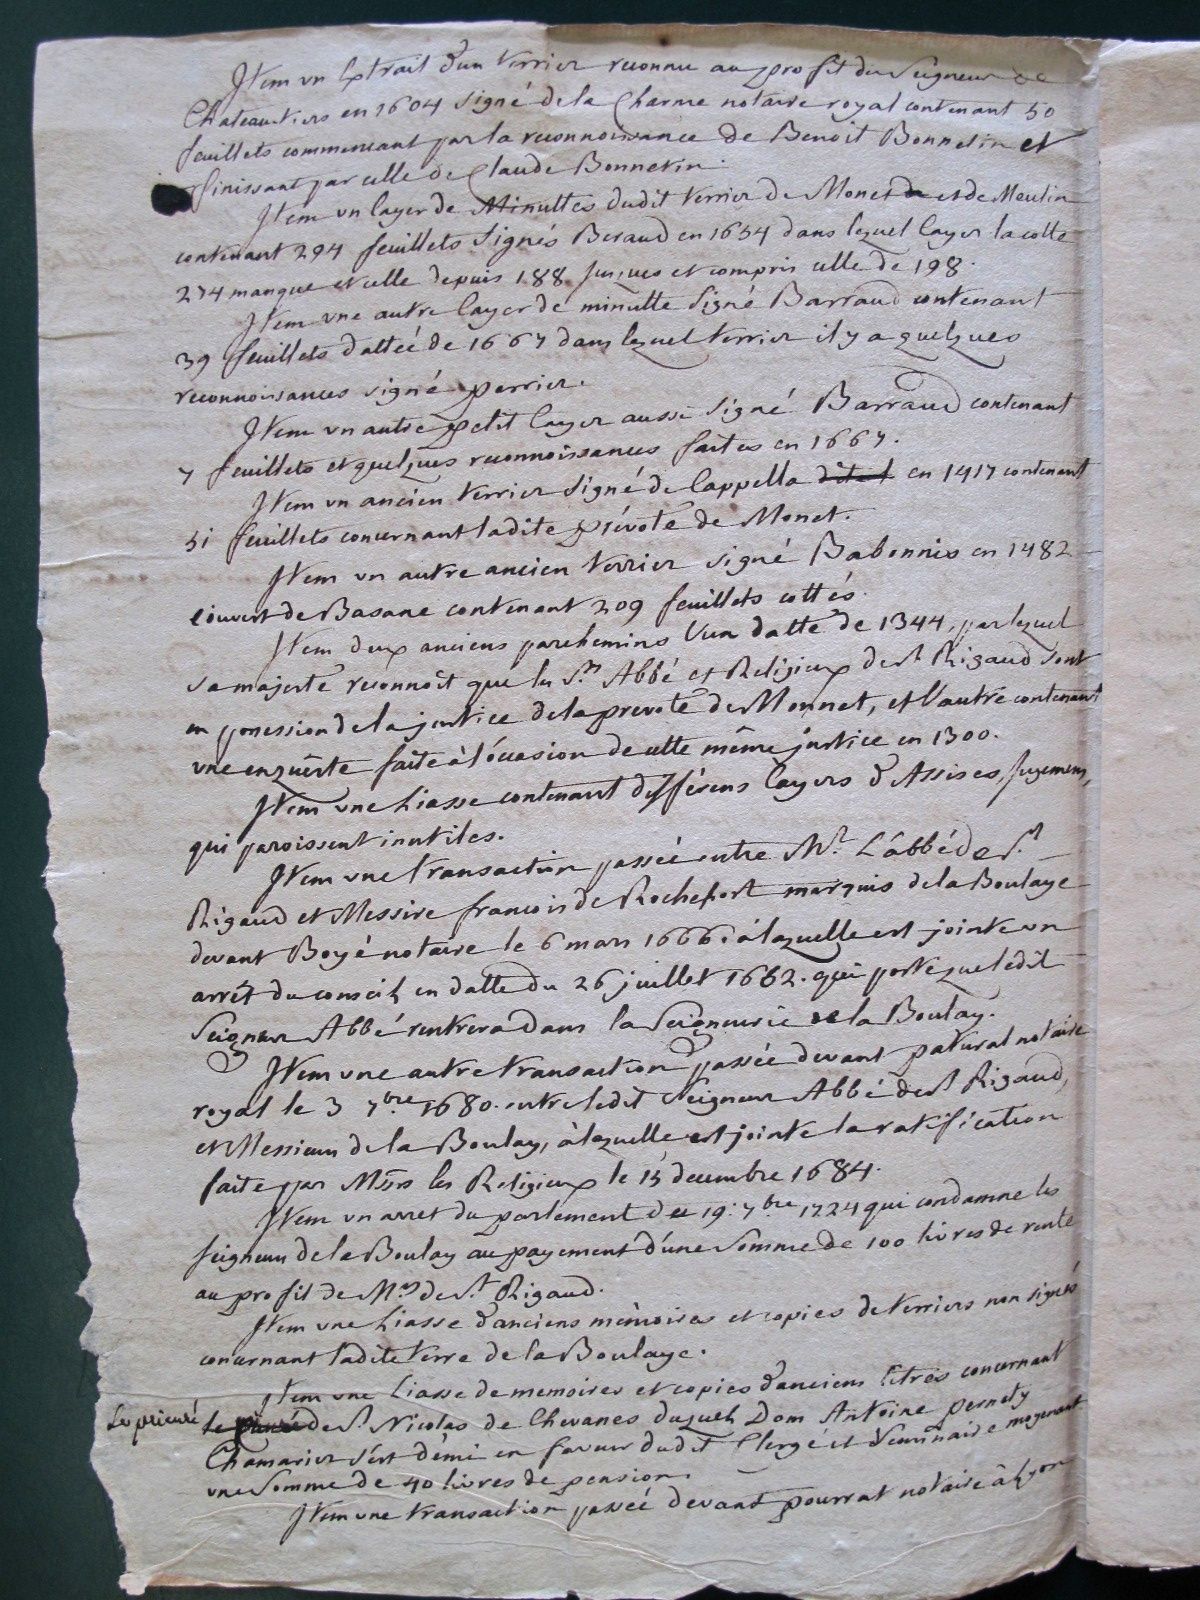 Item un Extrait d'un terrier reconnu au profit du Seigneur de
Chateautiers en 1604 signé de la Charme notaire royal contenant 50
feuillets commencant par la reconnoissance de Benoit Bonnetin et
finissant par celle de Claude Bonnetin.
Item un layer de Minuttes dudit terrier de Monet et de Meulin
contenant 294 feuillets signés Beraud en 1654 dans lequel layer la cotte
274 manque et celle depuis 188 jusques et compris celle de 198.
Item une autre layer de minutte signé Barraud contenant
39 feuillets dattée de 1667 dans lequel terrier il y a quelques
reconnoissances signé perrier.
Item un autre petit layer aussi signé Barraud contenant
7 feuillets et quelques reconnoissances faites en 1667.
Item un ancien terrier signé de Cappella en 1417 contenant
51 feuillets concernant ladite prévoté de Monet.
Item un autre ancien terrier signé Babonnis en 1482
couvert de Basane contenant 209 feuillets cottés.
Item deux anciens parchemins l'un datté de 1344, par lequel
sa majesté reconnoit que les Srs Abbé et Religieux de St Rigaud sont
en possession de la justice de la prevoté de Monnet, et l'autre contenant
une enquête faite à l'occasion de cette même justice en 1300.
Item une Liasse contenant différens layers d'Assises, jugemens,
qui paroissent inutiles.
Item une transaction passée entre Mr. L'abbé de St
Rigaud et Messire francois de Rochefort marquis de la Boulaye
devant Boyé notaire le 6 mars 1666. à laquelle est jointe un
arrêt du conseil en datte du 26 juillet 1662. qui porte que ledit
Seigneur Abbé rentrera dans la Seigneurie de la Boulay.
Item une autre transaction passée devant patural notaire
royal le 3 7bre 1680. entre ledit Seigneur Abbé de St Rigaud,
et Messieurs de la Boulay, à laquelle est jointe la ratification
faite par Mssrs les Religieux le 15 decembre 1684.
Item un arret du parlement du 19. 7bre 1724 qui condamne les
seigneurs de la Boulay au payement d'une Somme de 100 livres de rente
au profit de Mrs de St. Rigaud.
Item une Liasse d'anciens mémoires et copies de terriers non signés
concernant ladite terre de la Boulaye.
Item une Liasse de memoires et copies d'anciens titres concernant
Le prieuré le prieuré de St Nicolas de Chevanes duquel Dom Antoine pernety
Chamarier s'est démi en faveur dudit Clergé et Seminaire moyenant
une Somme de 40 livres de pension.
Item une transaction passée devant pourrat notaire à Lyon